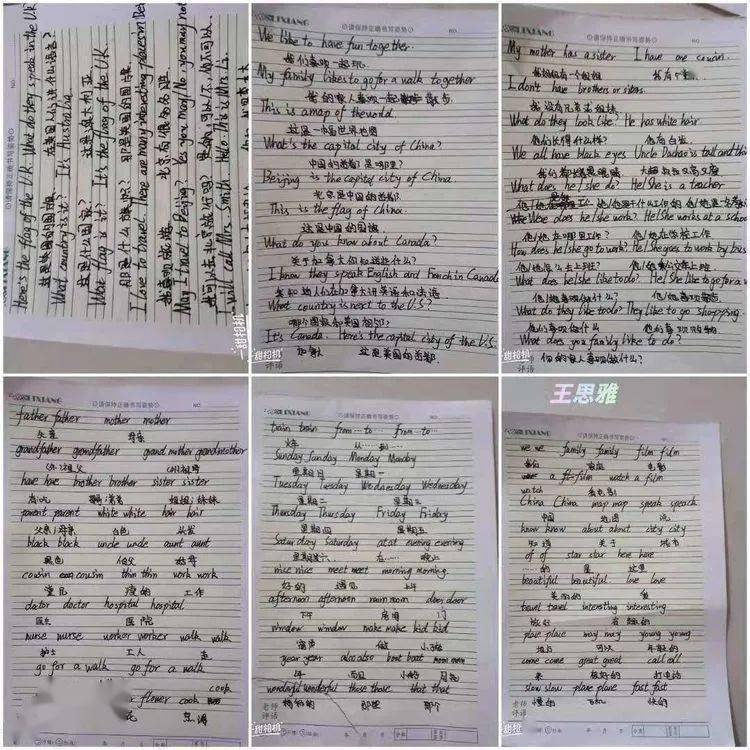 Here's the flag of the U.K. What do they speak in the U.K
这是英国的国旗. 在英国人们讲什么语言?
What country is it? It's Australia.
这是什么国家? 这是澳大利亚
What flag is it? It's the flag of the U.K.
那是什么旗帜? 那是英国的国旗.
I love to travel. There are many interesting places in Bei
我喜欢旅游. 北京有很多名胜
May I travel to Beijing? Yes you may/No you may not
我可以去北京旅行吗?
I will call Mrs. Smith. Hello. This is Mrs Li.
甜相机
We like to have fun together.
我们喜欢一起玩.
My family likes to go for a walk together
我的家人喜欢一起散步.
This is a map of the world.
这是一幅世界地图
What's the capital city of China?
中国的首都是哪里?
Beijing is the capital city of China.
北京是中国的首都.
This is the flag of China.
这是中国的国旗.
What do you know about Canada?
关于加拿大你知道些什么?
I know they speak English and French in Canada
我知道人们在加拿大讲英语和法语
What country is next to the U.S?
哪个国家和美国相邻?
It's Canada. Here's the capital city of the U.S.
加拿大 这是美国的首都.
甜相机
My mother has a sister I have one cousin.
我妈妈有一个姐姐 我有个
I don't have brothers or sisters.
我没有兄弟或姐妹
What do they look like? He has white hair.
他们长得什么样? 他有白发.
We all have black eyes Uncle Dachao is tall and thi
我们都有黑眼睛 大超叔叔又高又瘦
What does he/she do? He/She is a teacher
Where does he/she work? He/She works at a schoo
他/她在哪里工作? 他/她在学校工作
How does he/she go to work? He/She goes to work by bus
他/她怎么去上班? 他/她乘公交车上班
What does he/she like to do? He/She like to go for a w
他/她喜欢做什么? 他/她喜欢散步
What do they like to do? They like to go shopping.
他们喜欢做什么 他们喜欢购物.
What does you family like to do?
你的家人喜欢做什么?
甜相机
LIXIANG
◎请保持正确书写姿势◎ NO.
father father mother mother
父亲 母亲
grandfather grandfather grandmother grandmother
(外)祖父 (外)祖母
have have brother brother sister sister
有;吃 哥哥;弟弟 姐姐;妹妹
parent parent white white hair hair
父亲/母亲 白色 头发
black black uncle uncle aunt aunt
黑色 伯父 姑母
cousin cousin thin thin work work
堂兄 瘦的 工作
doctor doctor hospital hospital
医生 医院
nurse nurse worker worker walk walk
护士 工人 走
go for a walk go for a walk
cook
flower cook
花 烹调
甜相机
LIXIANG
◎请保持正确书写姿势◎ NO.
train train from...to... from...to...
火车 从……到
Sunday Sunday Monday Monday
星期日 星期一
Tuesday Tuesday Wednesday Wednesday
星期二 星期三
Thursday Thursday Friday Friday
星期四 星期五
Saturday Saturday at at evening evening
星期六 在…… 晚上
nice nice meet meet morning morning
好的 遇见 上午
afternoon afternoon room room door door
下午 房间 门
window window make make kid kid
窗户 做 小孩
year year also also boat boat moon moon
年 而且 小船 月亮
wonderful wonderful those those that that
精彩的 那些 那个
甜相机
王思雅
◎请保持正确书写姿势◎ NO.
we we family family film film
我们 家庭 电影
watch a film
watch 看电影
China China map map speak speack
中国 地图 说
know know about about city city
知道 关于 城市
of of star star here here
……的 星 这里
beautiful beautiful love love
美丽的 爱
travel travel interesting interesting
旅行 有趣的
place place may may young young
地方 可以 年轻的
come come great great call call
来 极好的 打电话
slow slow plane plane fast fast
慢的 飞机 快的
老师
评语
甜相机